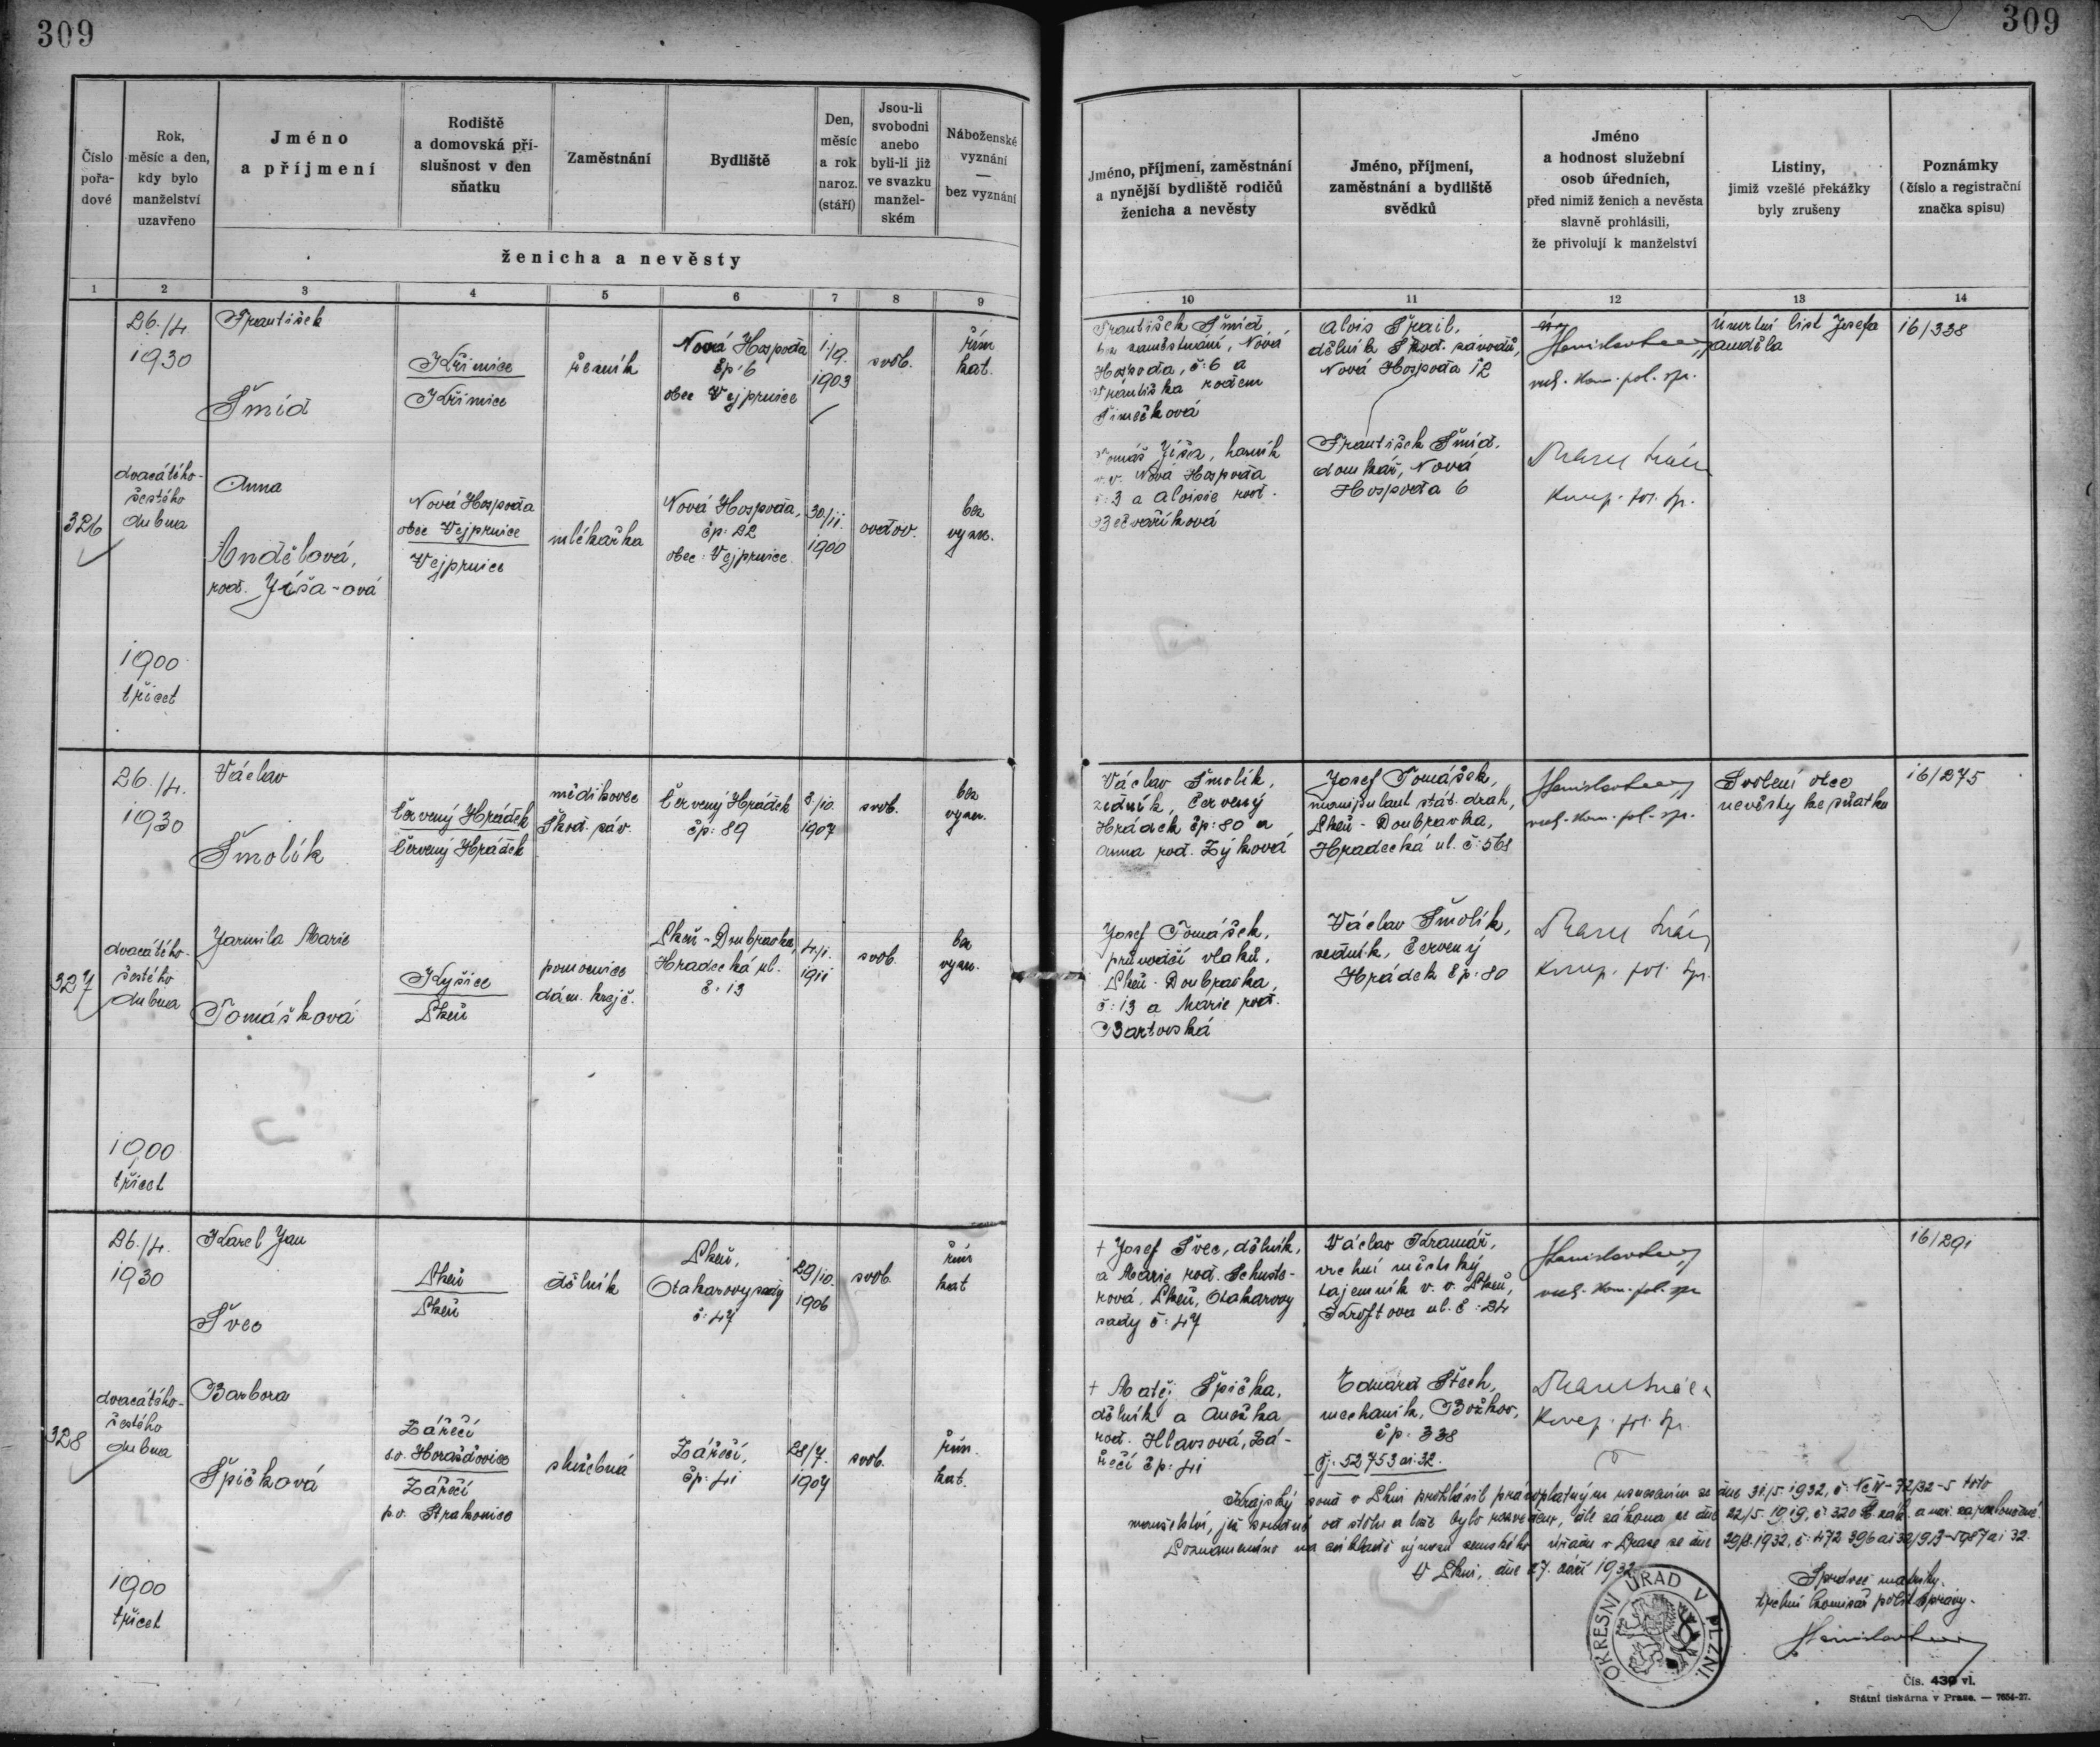 309
309
Číslo
pořa-
dové
Rok,
měsíc a den,
kdy bylo
manželství
uzavřeno
Jméno
a příjmení
Rodiště
a domovská pří-
slušnost v den
sňatku
Zaměstnání
Bydliště
Den,
měsíc
a rok
naroz.
(stáří)
Jsou-li
svobodni
anebo
byli-li již
ve svazku
manžel-
ském
Náboženské
vyznání
—
bez vyznání
ženicha a nevěsty
Jméno, příjmení, zaměstnání
a nynější bydliště rodičů
ženicha a nevěsty
Jméno, příjmení,
zaměstnání a bydliště
svědků
Jméno
a hodnost služební
osob úředních,
před nimiž ženich a nevěsta
slavně prohlásili,
že přivolují k manželství
Listiny,
jimiž vzešlé překážky
byly zrušeny
Poznámky
(číslo a registrační
značka spisu)
1 2 3 4 5 6 7 8 9
10 11 12 13 14
326
26./4.
1930
dvacátého-
šestého
dubna
1900
třicet
František
Šmíd
Křimice
Křimice
řezník
Nová Hospoda
čp: 6
obec Vejprnice
1./9.
1903
svob.
řím
kat.
Anna
Andělová,
rod. Jíša-ová
Nová Hospoda
obec Vejprnice
Vejprnice
mlékařka
Nová Hospoda,
čp: 22
obec: Vejprnice
30/11.
1900
ovdov.
bez
vyzn.
František Šmíd,
bez zaměstnání, Nová
Hospoda, č: 6 a
Františka rodem
Šimečková
Tomáš Jíša, horník
v.v. Nová Hospoda
č: 3 a Aloisie rod.
Bečvaříková
Alois Šrail,
dělník Škod. závodů,
Nová Hospoda 12
František Šmíd,
domkář, Nová
Hospoda 6
vrch. kom. pol. spr.
pol. spr.
Úmrtní list Josefa
Anděla
16/338
327
26./4.
1930
dvacátého-
šestého
dubna
1900
třicet
Václav
Šmolík
Červený Hrádek
Červený Hrádek
mědikovec
Škod. záv.
Červený Hrádek
čp: 89
8/10.
1907
svob.
bez
vyzn.
Jarmila Marie
Tomášková
Kyšice
Plzeň
pomocnice
dám. krejč.
Plzeň-Doubravka,
Hradecká ul.
č: 13
4./1.
1911
svob.
bez
vyzn.
Václav Šmolík,
zedník, Červený
Hrádek čp: 80 a
Anna rod. Zýková
Josef Tomášek,
průvodčí vlaků,
Plzeň-Doubravka,
č: 13 a Marie rod.
Bartovská
Josef Tomášek,
manipulant stát. drah,
Plzeň-Doubravka,
Hradecká ul. č: 568
Václav Šmolík,
zedník, Červený
Hrádek čp: 80
vrch. kom. pol. spr.
pol. spr.
Svolení otce
nevěsty ke sňatku
16/275
328
26./4.
1930
dvacátého-
šestého
dubna
1900
třicet
Karel Jan
Švec
Plzeň
Plzeň
dělník
Plzeň,
Otakarovy sady
č: 47
29/10.
1906
svob.
řím
kat
Barbora
Špičková
Zářečí
s.o. Horažďovice
Zářečí
p.o. Strakonice
služebná
Zářečí,
čp: 41
28/7.
1907
svob.
řím.
kat.
† Josef Švec, dělník,
a Marie rod. Schusto-
rová, Plzeň, Otakarovy
sady č: 47
† Matěj Špička,
dělník a Anežka
rod. Hlavsová, Zá-
řečí čp: 41
Václav Kramář,
vrchní městský
tajemník v. v. Plzeň,
Kroftova ul. č: 24
Eduard Štech,
mechanik, Božkov,
čp: 338
vrch. kom. pol. spr.
pol. spr.
16/291
Čj. 52753 ai 32.
Krajský soud v Plzni prohlásil právoplatným usnesením ze dne 31./5. 1932, č: Nc IV-72/32-5 toto
manželství, jež soudně od stolu a lože bylo rozvedeno, dle zákona ze dne 22/5. 1919, č: 320 Sb. zák. a nař. za rozloučené.
Poznamenáno na základě výnosu zemského úřadu v Praze ze dne 1932, č: 472.396 ai
V Plzni, dne 27. září 1932
Správce matriky.
vrchní komisař polit. správy.
OKRESNÍ ÚŘAD V PLZNI.
Čís. 430 vl.
Státní tiskárna v Praze. — 7654-27.